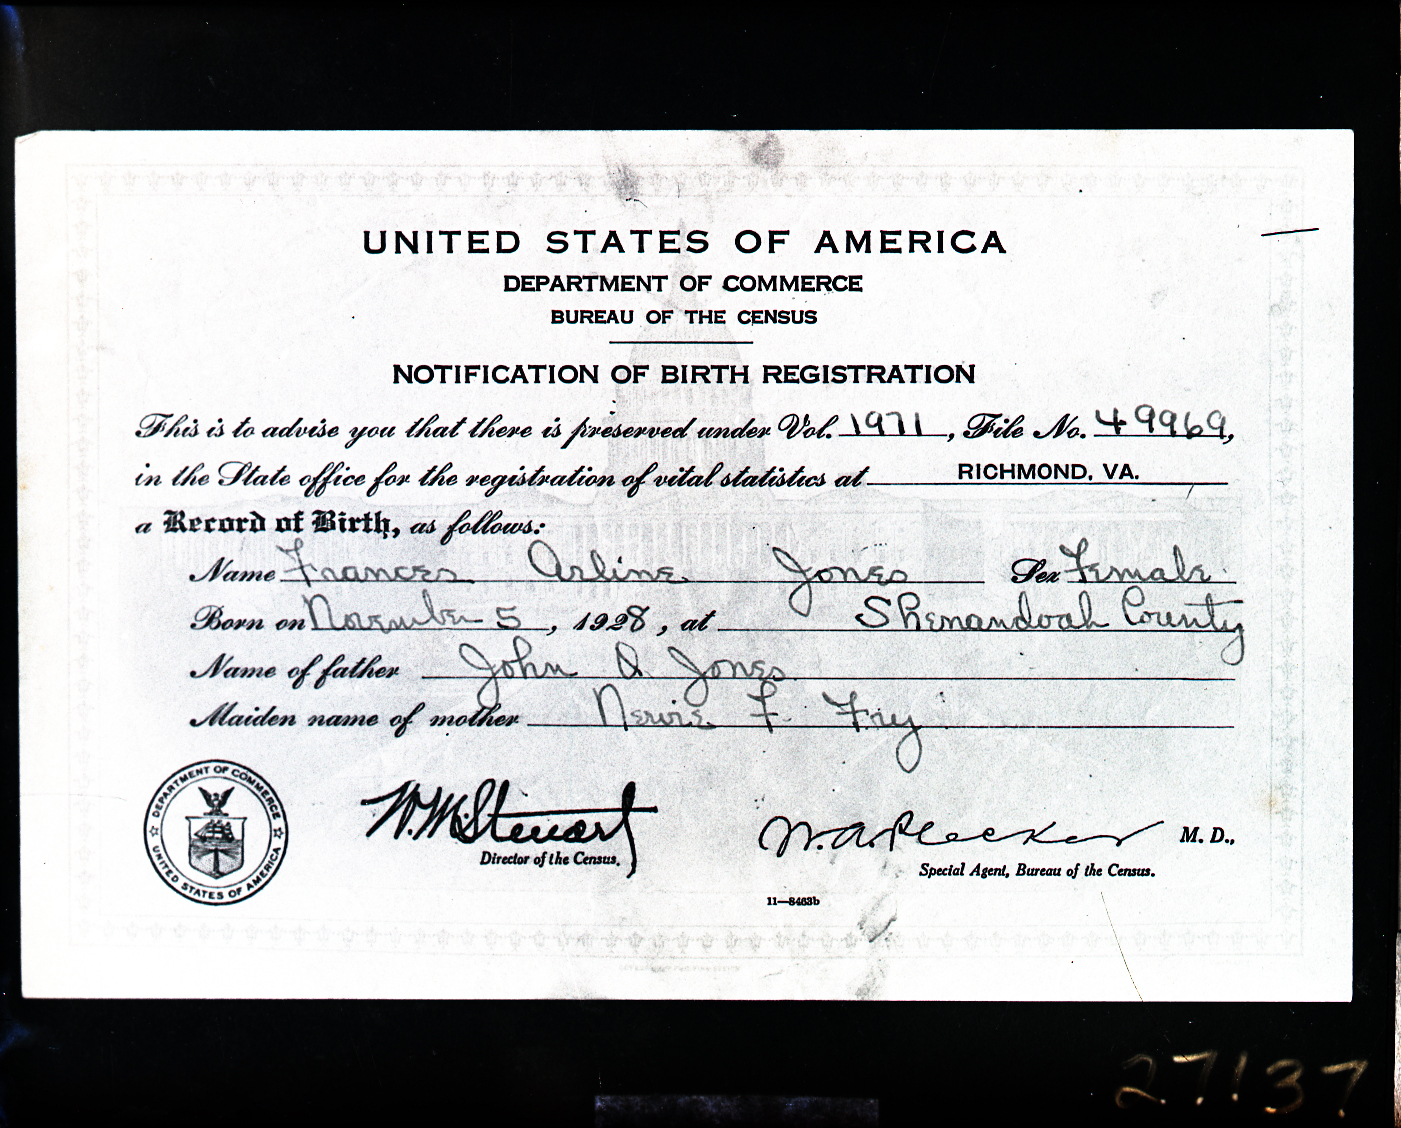 UNITED STATES OF AMERICA
DEPARTMENT OF COMMERCE
BUREAU OF THE CENSUS
NOTIFICATION OF BIRTH REGISTRATION
This is to advise you that there is preserved under Vol. 1971, File No. 49969,
in the State office for the registration of vital statistics at RICHMOND, VA.
a Record of Birth, as follows:
Name Frances Arline Jones Sex Female
Born on November 5, 1928, at Shenandoah County
Name of father John Q Jones
Maiden name of mother Nervie F. Fry
DEPARTMENT OF COMMERCE
UNITED STATES OF AMERICA
W. M. Steuart
Director of the Census.
W. A. Plecker M. D.,
Special Agent, Bureau of the Census.
11—8463b
27137